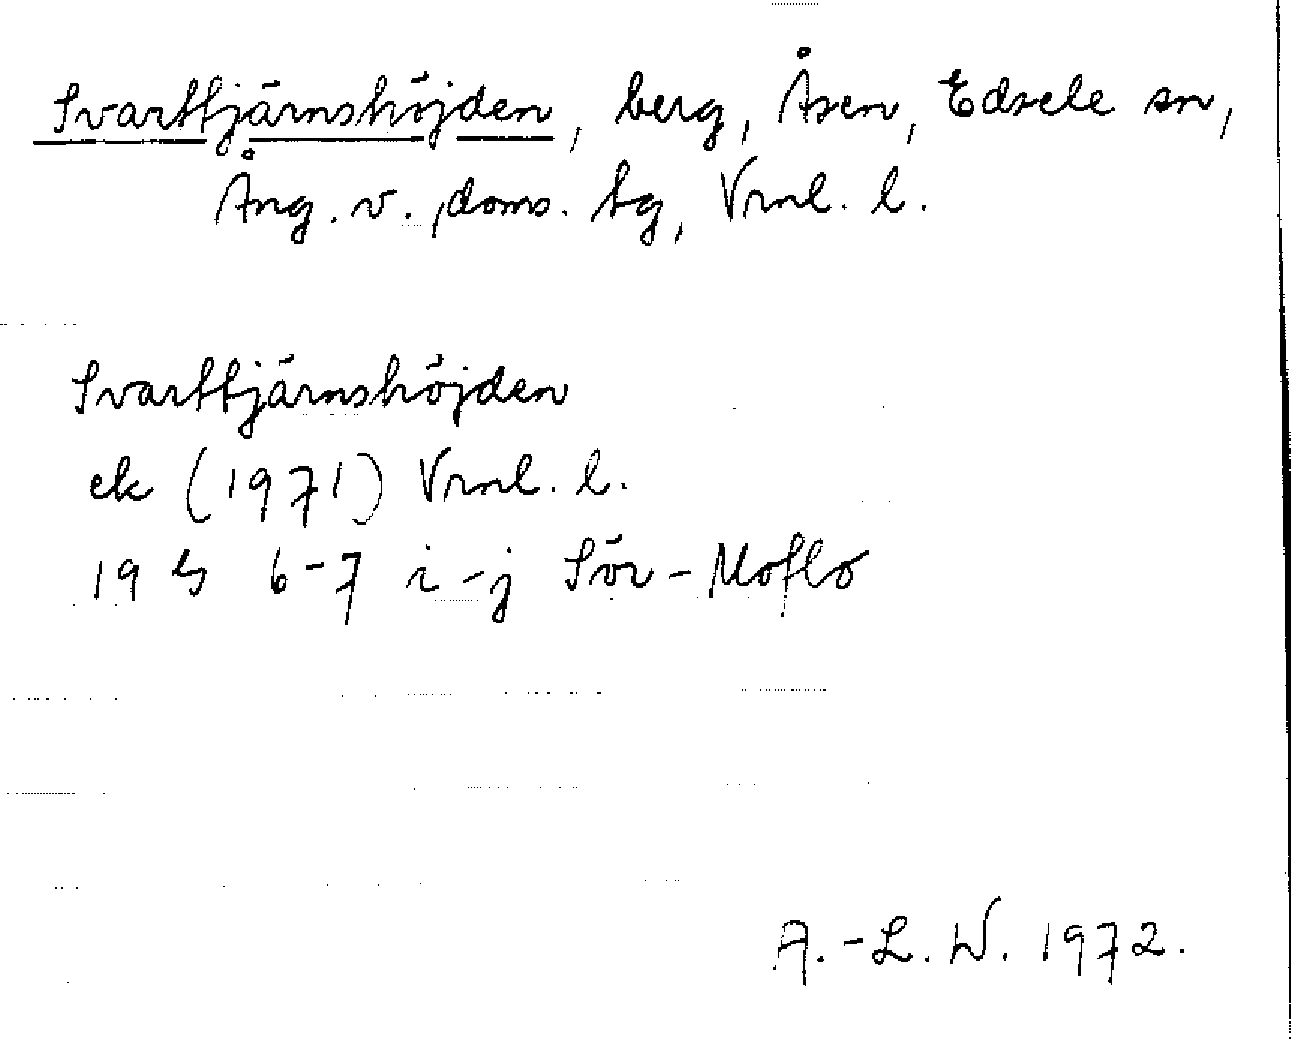 Svarttjärnshöjden, berg, Åsen, Edsele sn,
Ång. v., doms. tg, Vrnl. l.
Svarttjärnshöjden
ek (1971) Vrnl. l.
19 G 6-7 i-j Sör-Moflo
A.-L. W. 1972.